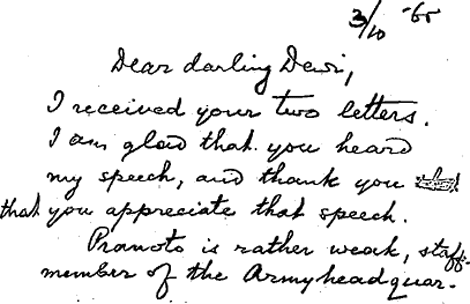 3/10 -65
Dear darling Dewi,
I received your two letters.
I am glad that you heard
my speech, and thank you
that you appreciate that speech.
Pranoto is rather weak, staff-
member of the Armyheadquar-